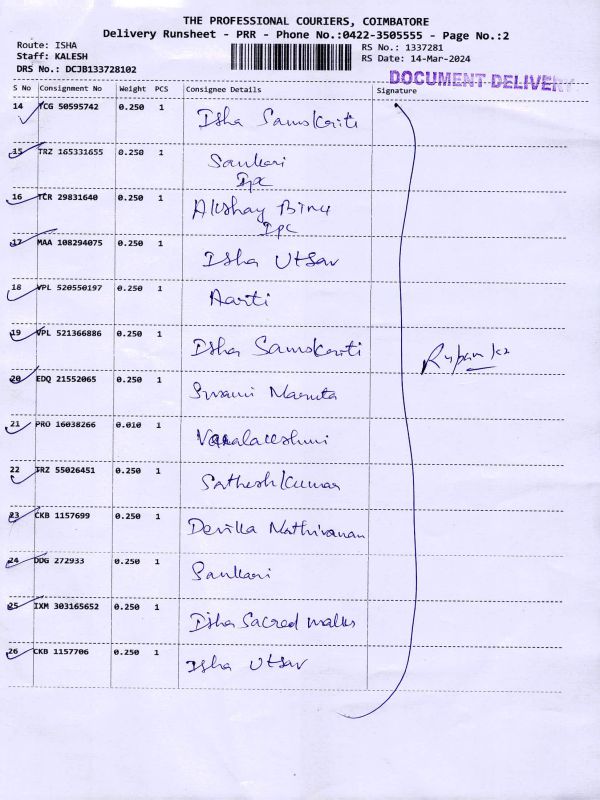 THE PROFESSIONAL COURIERS, COIMBATORE
Delivery Runsheet - PRR - Phone No.:0422-3505555 - Page No.:2
Route: ISHA
Staff: KALESH
DRS No.: DCJB133728102
RS No.: 1337281
RS Date: 14-Mar-2024
DOCUMENT DELIVERY
S No Consignment No Weight PCS Consignee Details Signature
14 TCG 50595742 0.250 1 Isha Samskriti
15 TRZ 165331655 0.250 1 Sankari
Ipc
16 TCR 29831640 0.250 1 Akshay Binu
Ipc
17 MAA 108294075 0.250 1 Isha Utsav
18 VPL 520550197 0.250 1 Aarti
19 VPL 521366886 0.250 1 Isha Samskriti
20 EDQ 21552065 0.250 1 Swami
21 PRO 16038266 0.010 1 Varalakshmi
22 TRZ 55026451 0.250 1 Sathesh Kumar
23 CKB 1157699 0.250 1 Devika Mathivanan
24 DDG 272933 0.250 1 Sankari
25 IXM 303165652 0.250 1 Isha Sacred walks
26 CKB 1157706 0.250 1 Isha Utsav